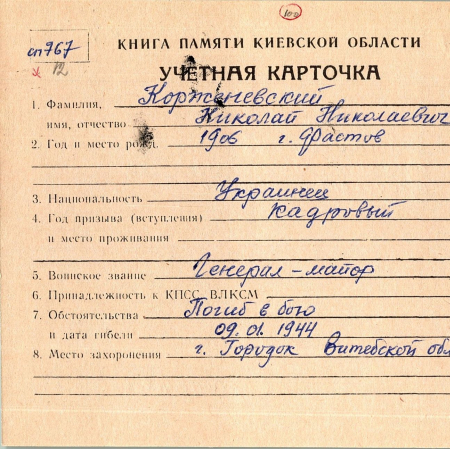 100
оп767
х 12
КНИГА ПАМЯТИ КИЕВСКОЙ ОБЛАСТИ
УЧЕТНАЯ КАРТОЧКА
1. Фамилия, Корженевский
имя, отчество Николай Николаевич
2. Год и место рожд. 1906 г. Фастов
3. Национальность Украинец
4. Год призыва (вступления) кадровый
и место проживания
5. Воинское звание Генерал-майор
6. Принадлежность к КПСС, ВЛКСМ
7. Обстоятельства Погиб в бою
и дата гибели 09.01.1944
8. Место захоронения г. Городок Витебской обл